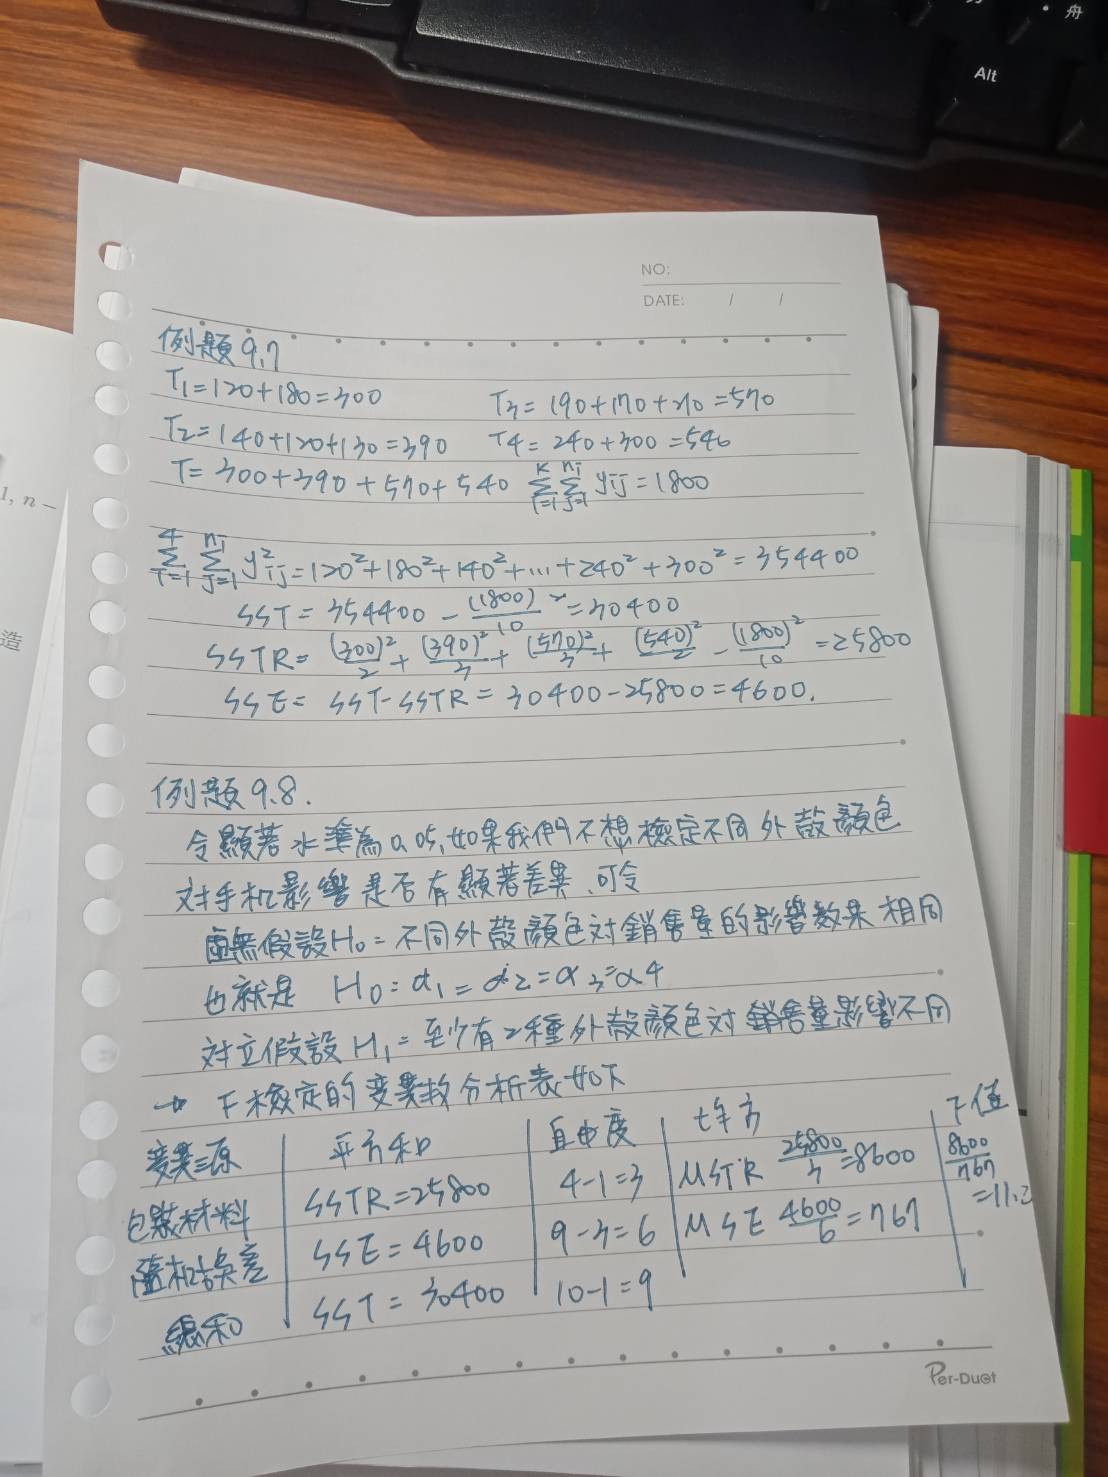 Alt
舟
NO:
DATE: / /
1, n −
造
例題9.7
T1=120+180=300 T3=190+170+210=570
T2=140+120+130=390 T4=240+300=540
T=300+390+570+540 K∑i=1 nj∑j=1 yij=1800
4∑i=1 nj∑j=1 y²ij=120²+180²+140²+...+240²+300²=354400
SST=354400-(1800)²/10=30400
SSTR=(300)²/2+(390)²/3+(570)²/3+(540)²/2-(1800)²/10=25800
SSE=SST-SSTR=30400-25800=4600.
例題9.8.
令顯著水準為0.05,如果我們不想檢定不同外殼顏色
對手机影響是否有顯著差異、可令
虛無假設H0=不同外殼顏色對銷售量的影響效果相同
也就是 H0:α1=α2=α3=α4
對立假設H1=至少有2種外殼顏色對銷售量影響不同
→ F檢定的變異數分析表如下
變異源 平方和 自由度 均方 F值
包裝材料 SSTR=25800 4-1=3 MSTR 25800/3=8600 8600/767=11.2
隨机誤差 SSE=4600 9-3=6 MSE 4600/6=767
總和 SST=30400 10-1=9
Per-Duet